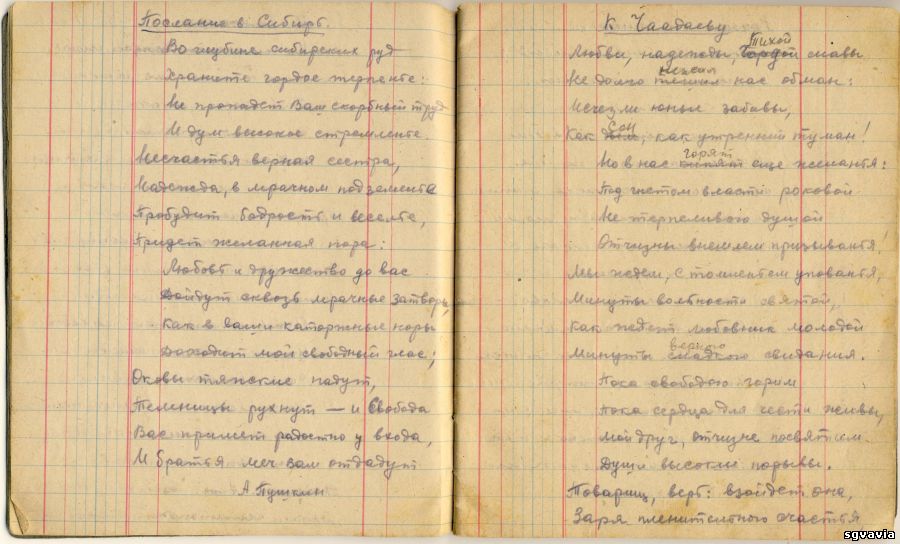 Послание в Сибирь.
Во глубине сибирских руд
Храните гордое терпенье:
Не пропадет Ваш скорбный труд
И дум высокое стремленье.
Несчастья верная сестра,
Надежда, в мрачном подземелье
Пробудит бодрость и веселье,
Придет желанная пора:
Любовь и дружество до вас
Дойдут сквозь мрачные затворы,
Как в ваши каторжные норы
Доходит мой свободный глас;
Оковы тяжские падут,
Темницы рухнут — и Свобода
Вас примет радостно у входа,
И братья меч вам отдадут
А Пушкин
К Чаадаеву
тихой
Любви, надежды, гордой славы
нежил
Не долго тешил нас обман:
Исчезли юные забавы,
сон
Как дым, как утренний туман!
горят
Но в нас кипят еще желанья:
Под гнетом власти роковой
Не терпеливого душой
Отчизны внемлем призыванья!
Мы ждем, с томленьем упованья,
Минуты вольности святой,
Как ждет любовник молодой
верного
Минуты сладкого свидания.
Пока свободою горим
Пока сердца для чести живы,
Мой друг, отчизне посвятим
Души высокие порывы.
Товарищ, верь: взойдет она,
Заря пленительного счастья
sgvavia